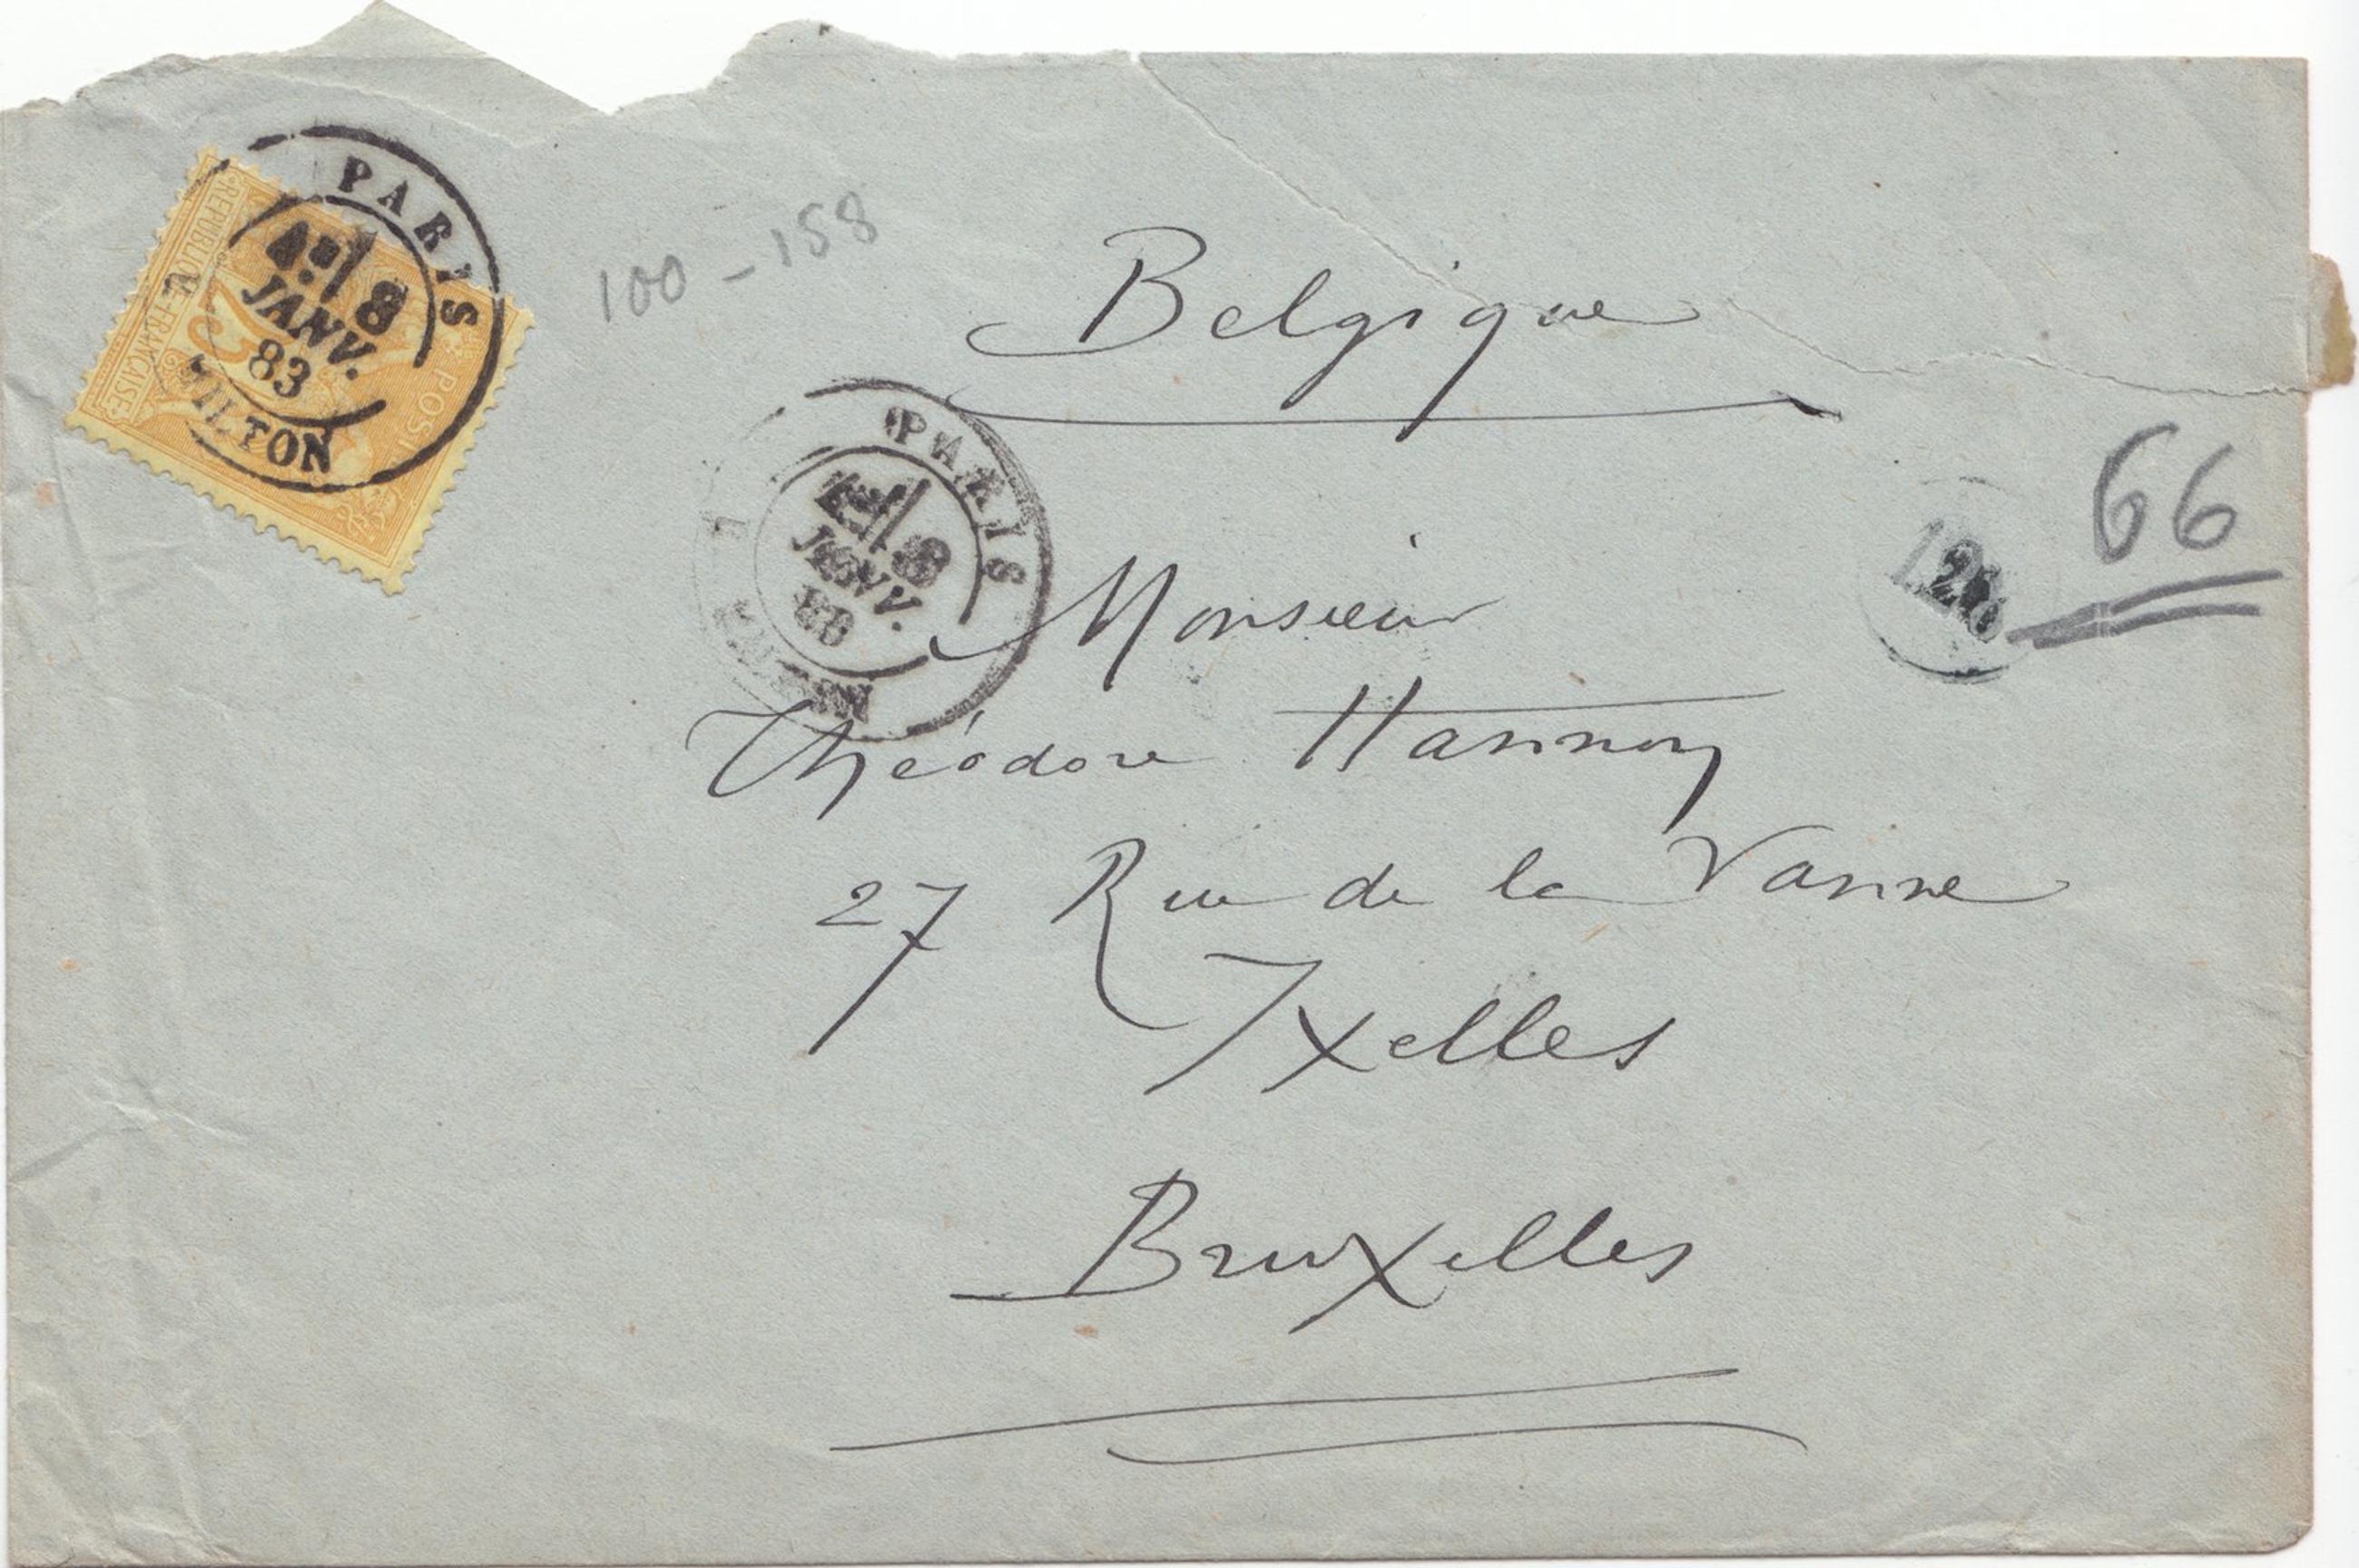 PARIS
8
JANV.
83
MILTON
REPUBLIQUE FRANÇAISE
POSTES
25
100 - 158
Belgique
PARIS
8
JANV.
66
Monsieur
Théodore Hannon
27 Rue de la Vanne
Ixelles
Bruxelles